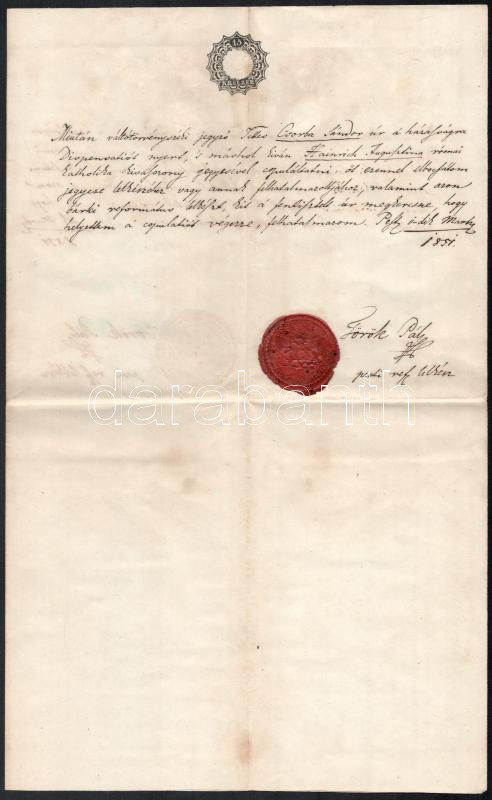 15
KREUZ
Miután váltótörvényszéki jegyző Tettes Csorba Sándor úr a házasságra
Dispensatiót nyert, s máshol kíván Hainrich Augusztina római
Katholika hajadon jegyesével copuláltatni: őt ezennel elbocsátom
jegyese lelkészéhez vagy annak felhatalmazottjához; valamint azon
bárki református lelkészt, kit a fentisztelt úr megkeresne, hogy
helyettem a copulatiót végezze, felhatalmazom. Pest, 6-dik Martz
1851.
Török Pál
pesti ref lelkész
darabanth